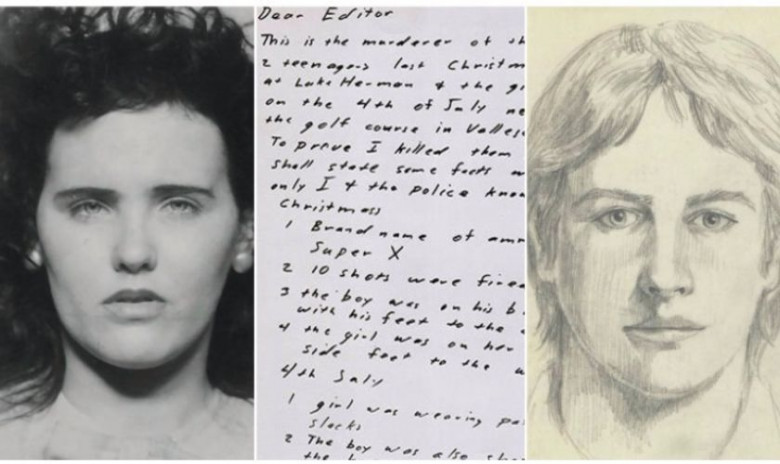 Dear Editor
This is the murderer of th
2 teenagers last Christm
at Lake Herman & the gi
on the 4th of July ne
the golf course in Valle
To prove I killed them
shall state some facts w
only I & the police know
Christmass
1 Brand name of amm
Super X
2 10 shots were fire
3 the boy was on his b
with his feet to the
4 the girl was on her
side feet to the w
4th July
1 girl was wearing pa
slacks
2 The boy was also sh